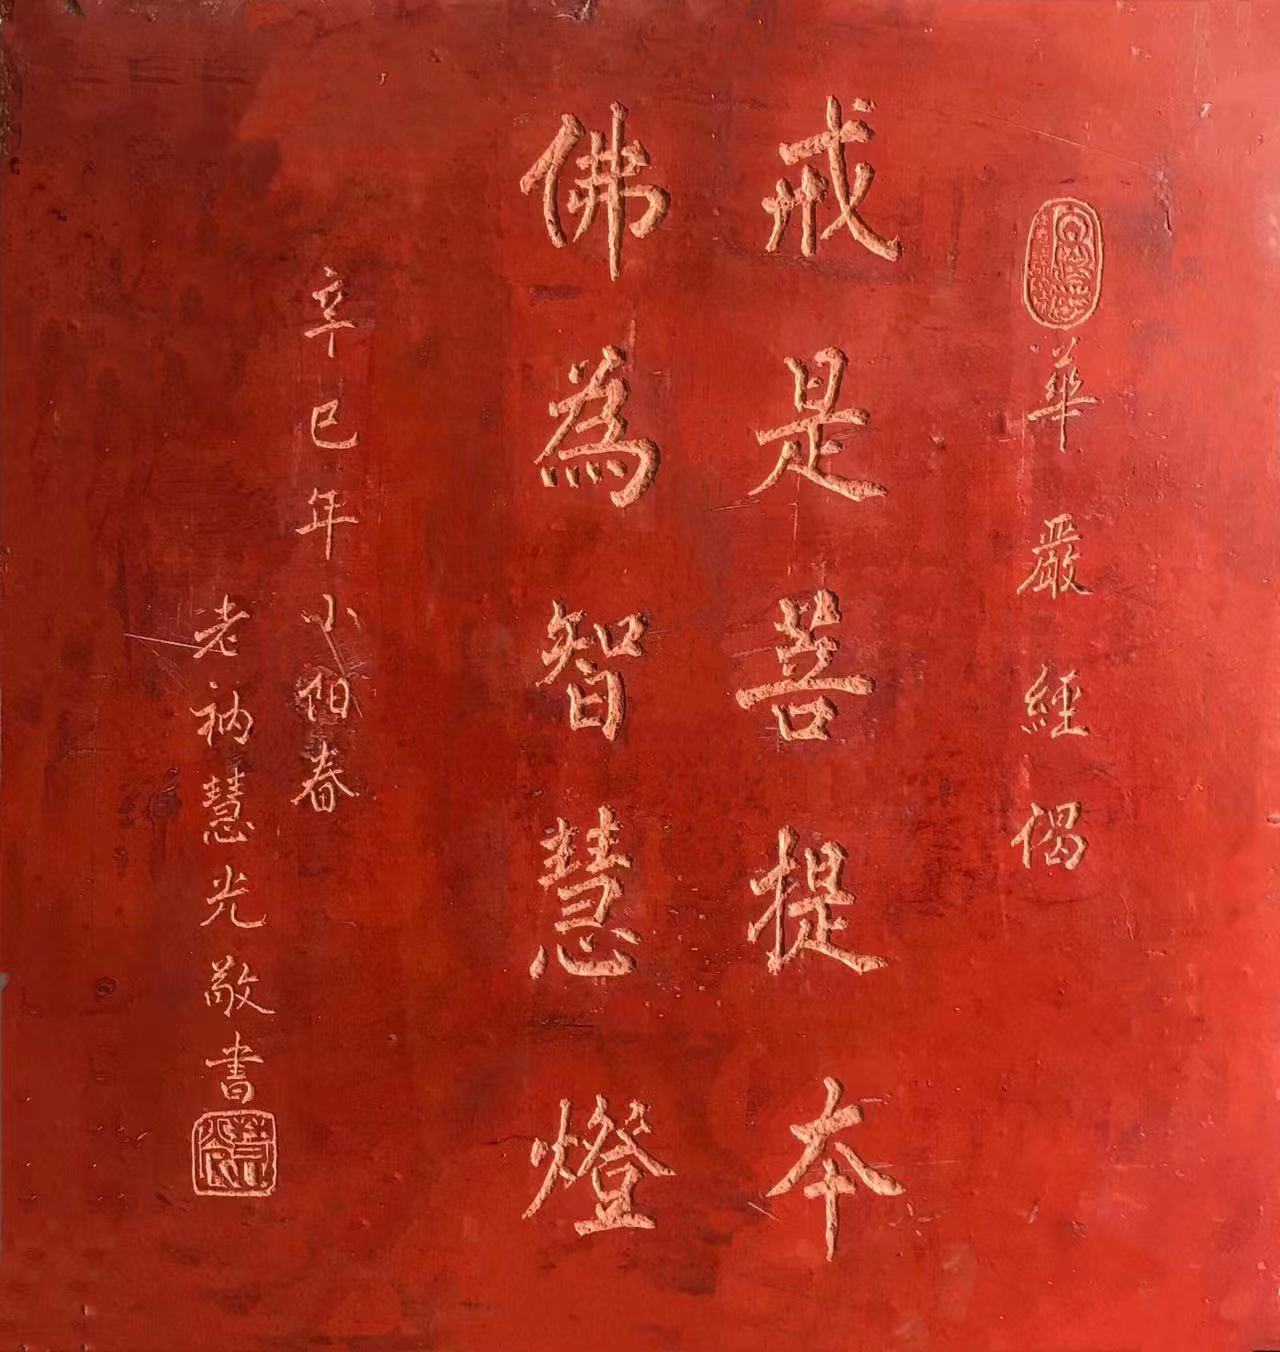 華嚴經偈
戒是菩提本
佛為智慧燈
辛巳年小陽春
老衲慧光敬書